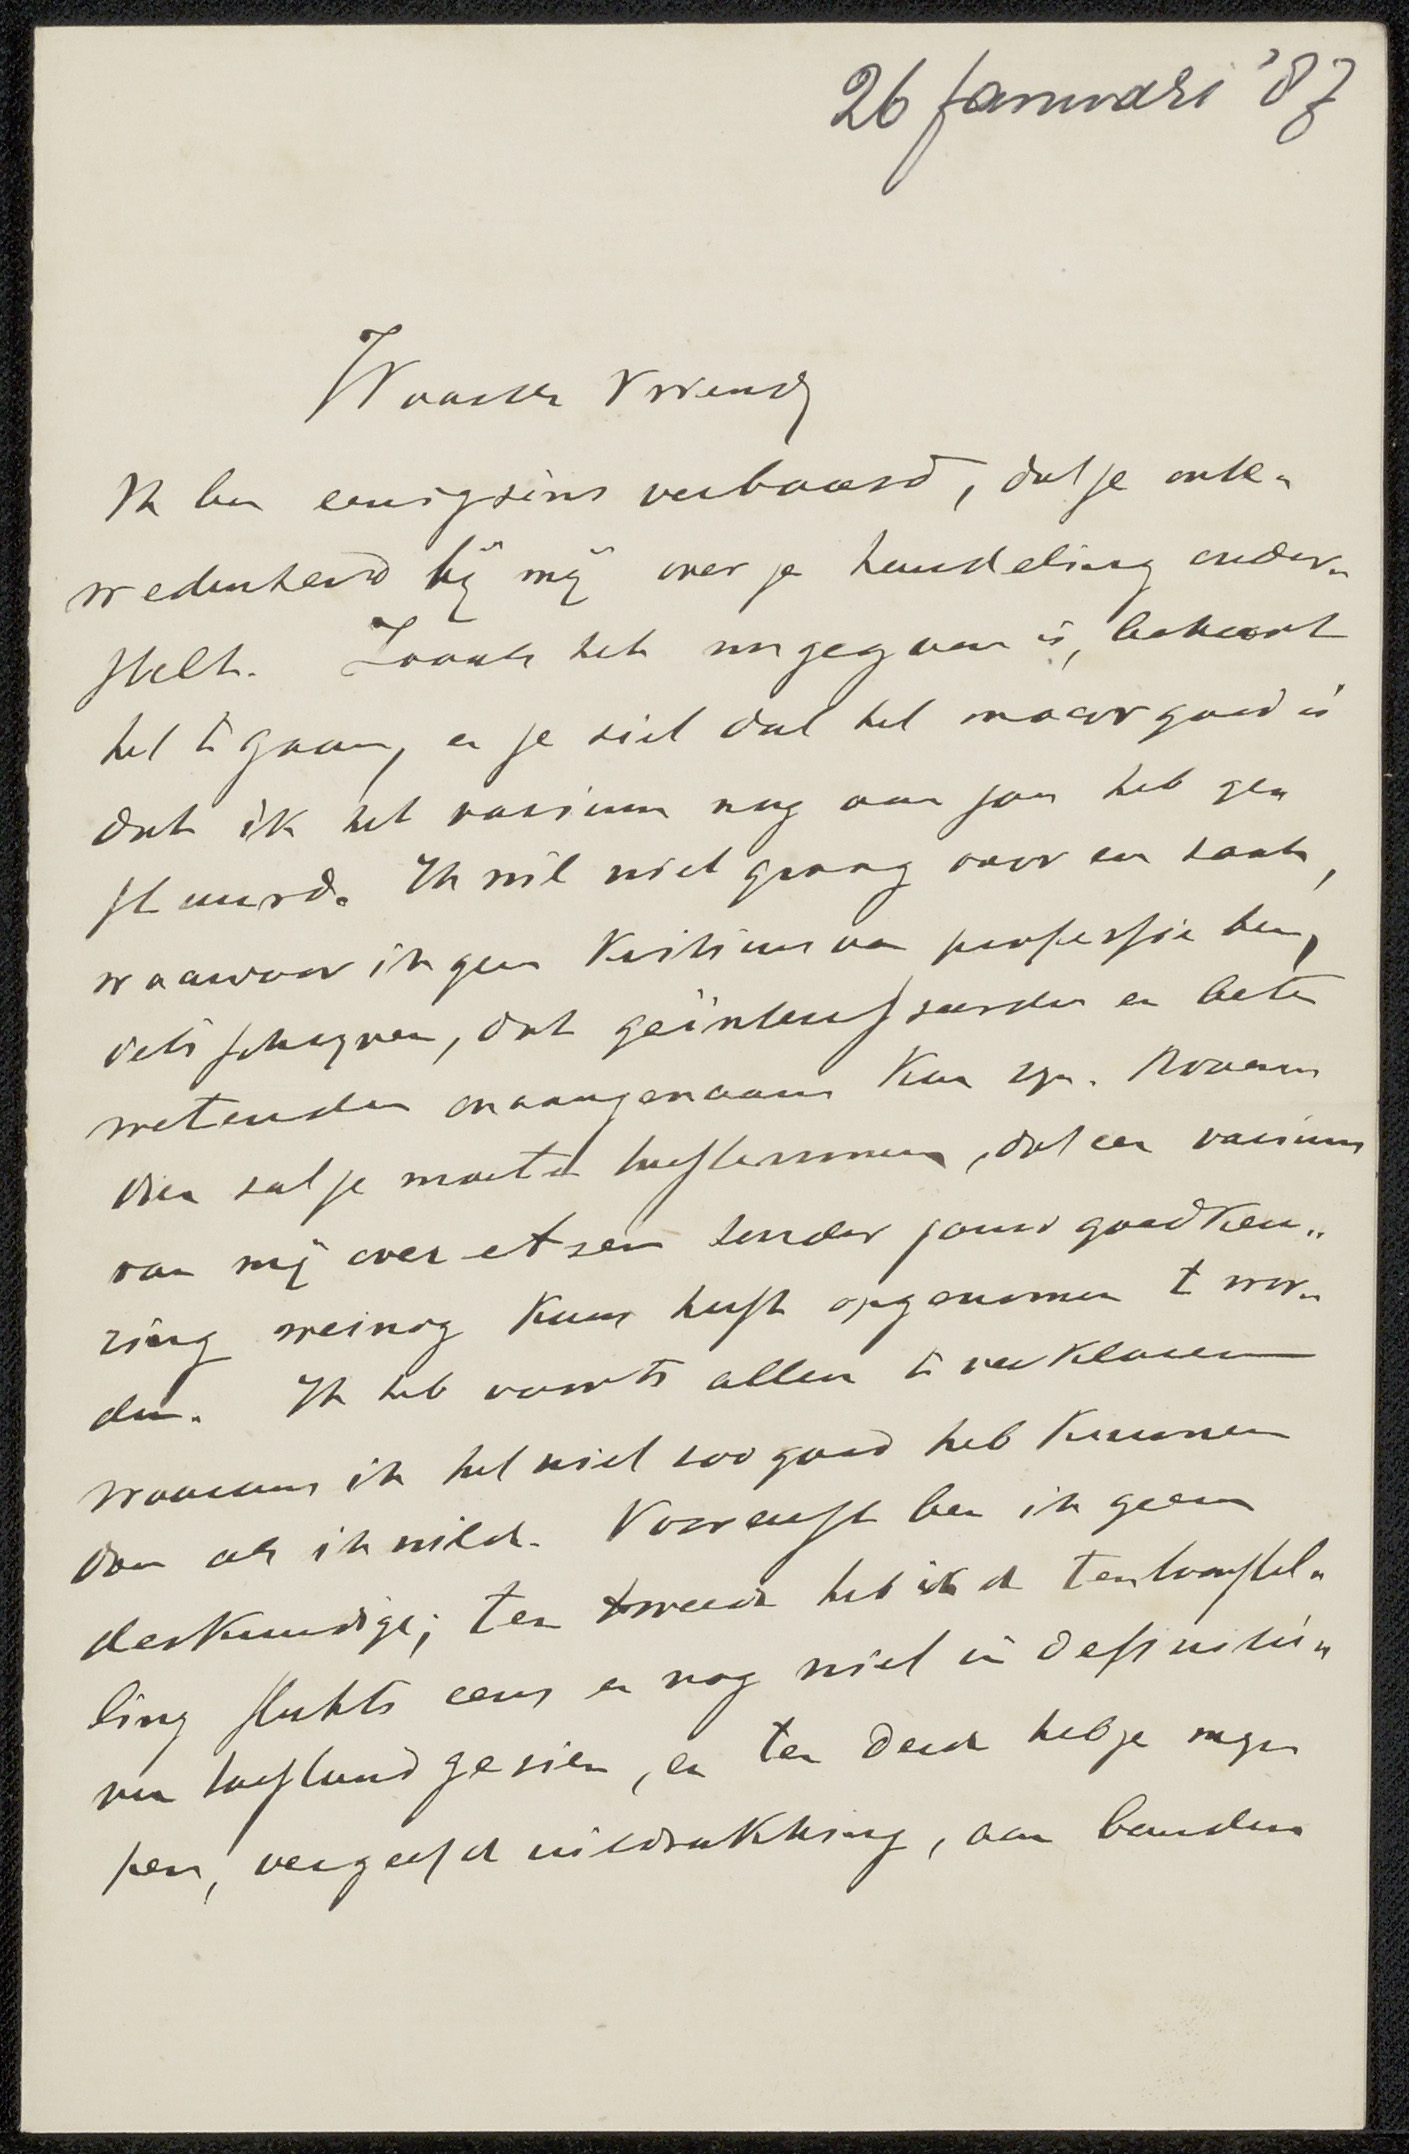 26 Januari '87
Waarde Vriend
Ik ben eenigzins verbaasd, dat je onte-
vredenheid bij mij over je handeling onder-
stelt. Zooals het nu gegaan is, behoort
het te gaan, en je ziet dat het maar goed is
dat ik het varium nog aan jou heb ge-
stuurd. Ik wil niet graag over een zaak,
waarvoor ik geen kritikus van professie ben,
iets schrijven, dat geïnteresseerden en beter
wetenden onaangenaam kan zijn. Bovenn
dien zal je moeten toestemmen, dat een varium
van mij over etsen zonder jouw goedkeu-
ring weinig kans heeft opgenomen te wor-
den. Ik heb voorts alleen te verklaren
waarom ik het niet zoo goed heb kunnen
doen als ik wilde. Vooreerst ben ik geen
deskundige; ten tweede heb ik de tentoonstel-
ling slechts eens en nog niet in definitie-
ven toestand gezien, en ten derde heb je mijn
pen, vergeef de uitdrukking, aan banden